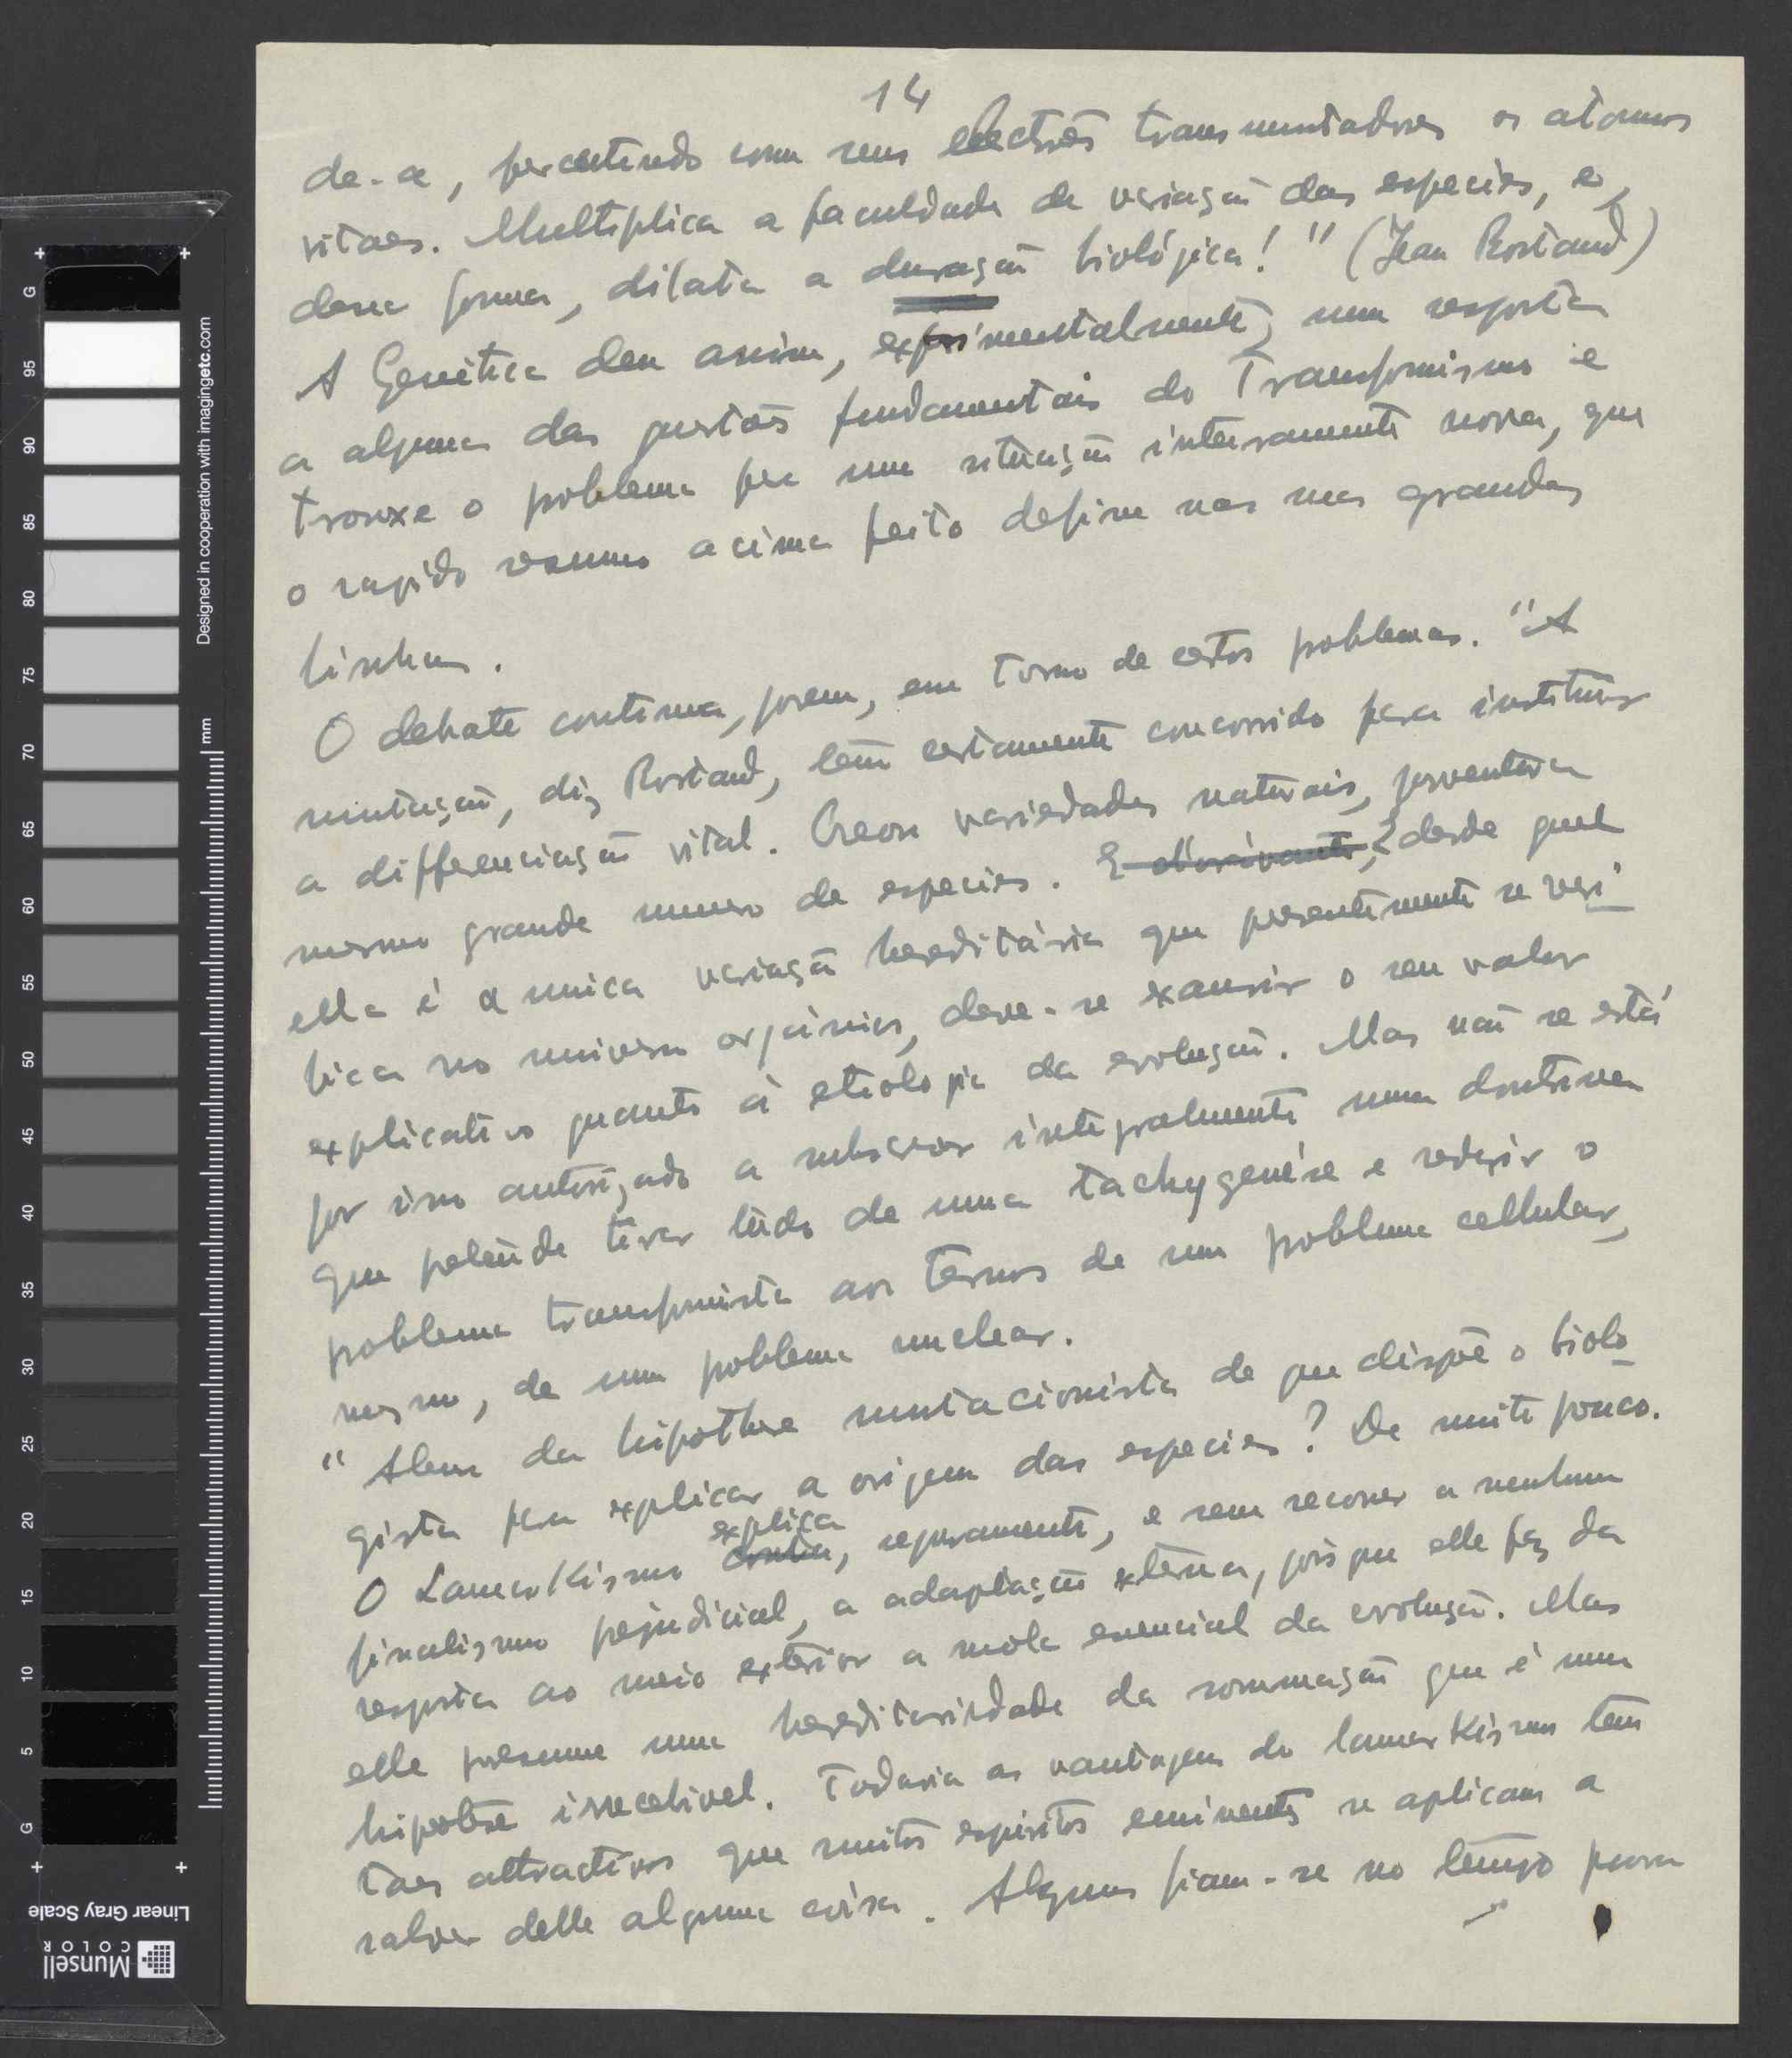 14
da-a, percutindo com seus electrões transmutadores os atomos
vitaes. Multiplica a faculdade de variação das especies, e,
dessa forma, dilata a duração biológica!" (Jean Rostand)
A Genética deu assim, experimentalmente, uma resposta
a alguma das questões fundamentais do Transformismo e
trouxe o problema para uma situação inteiramente nova, que
o rapido resumo acima feito define nas suas grandes
linhas.
O debate continua, porem, em torno de certos problemas. "A
mutação, diz Rostand, tem certamente concorrido para instituir
a differenciação vital. Creou variedades naturais, porventura
mesmo grande numero de especies. E desde que
ella é a unica variação hereditária que presentemente se veri
fica no universo orgánico, deve-se exaurir o seu valor
explicativo quanto á etiologia da evolução. Mas não se está
por isso autorizado a subscrever integralmente uma doutrina
que pretende tirar tudo de uma tachygenése e reduzir o
problema transformista aos termos de um problema cellular,
mesmo, de um problema nuclear.
" Alem da hipothese mutacionista de que dispõe o biolo
gista para explicar a origem das especies? De muito pouco.
O Lamarkismo explica, seguramente, e sem recorrer a nenhum
finalismo prejudicial, a adaptação externa, pois que elle faz da
resposta ao meio exterior a mola essencial da evolução. Mas
elle presume uma hereditariedade da sommação que é uma
hipotese irrecebivel. Todavia as vantagens do lamarkismo tem
taes attractivos que muitos espiritos eminentes se aplicam a
salvar delle alguma coisa. Alguns fiam-se no tempo para
Designed in cooperation with imagingetc.com
mm
G
95
90
85
80
75
70
65
60
55
50
45
40
35
30
25
20
15
10
5
G
Linear Gray Scale
Munsell
COLOR